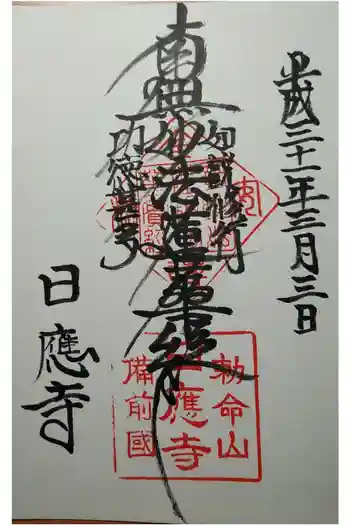 平成三十一年三月三日
如説修行
南無妙法蓮華経
功徳甚多
日應寺
勅命山
日應寺
備前國